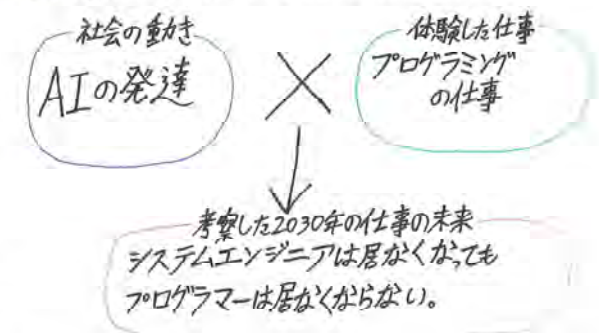 社会の動き
AIの発達
体験した仕事
プログラミング
の仕事
考察した2030年の仕事の未来
システムエンジニアは居なくなっても
プログラマーは居なくならない。